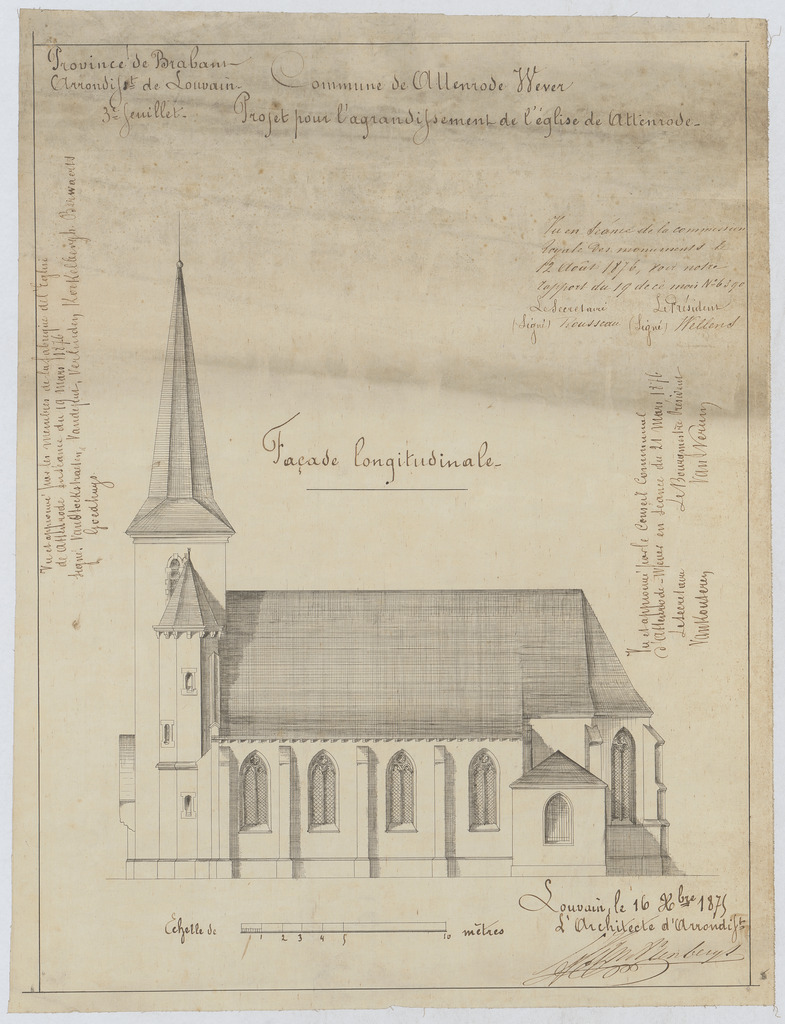 Province de Brabant
Arrondisst de Louvain
3e feuillet.
Commune de Attenrode Wever
Projet pour l'agrandissement de l'église de Attenrode.
Vu et approuvé par les membres de la fabrique del'Eglise
de Attenrode en séance du 19 Mars 1876
signé:
Goedhuys
Vu en séance de la commission
royale des monuments le
12 Août 1876, voir notre
rapport du 19 de ce mois No
Le Secretaire Le Président
(signé) Rousseau (signé) Wellens
Façade longitudinale
Vu et approuvé par le Conseil Communal
d'Attenrode-Wever en séance du 21 Mars 1876
Le Secretaire Le Bourgmestre Président
Echelle de 1 2 3 4 5 10 mètres
Louvain, le 16 Xbre 1875
L'Architecte d'Arrondisst